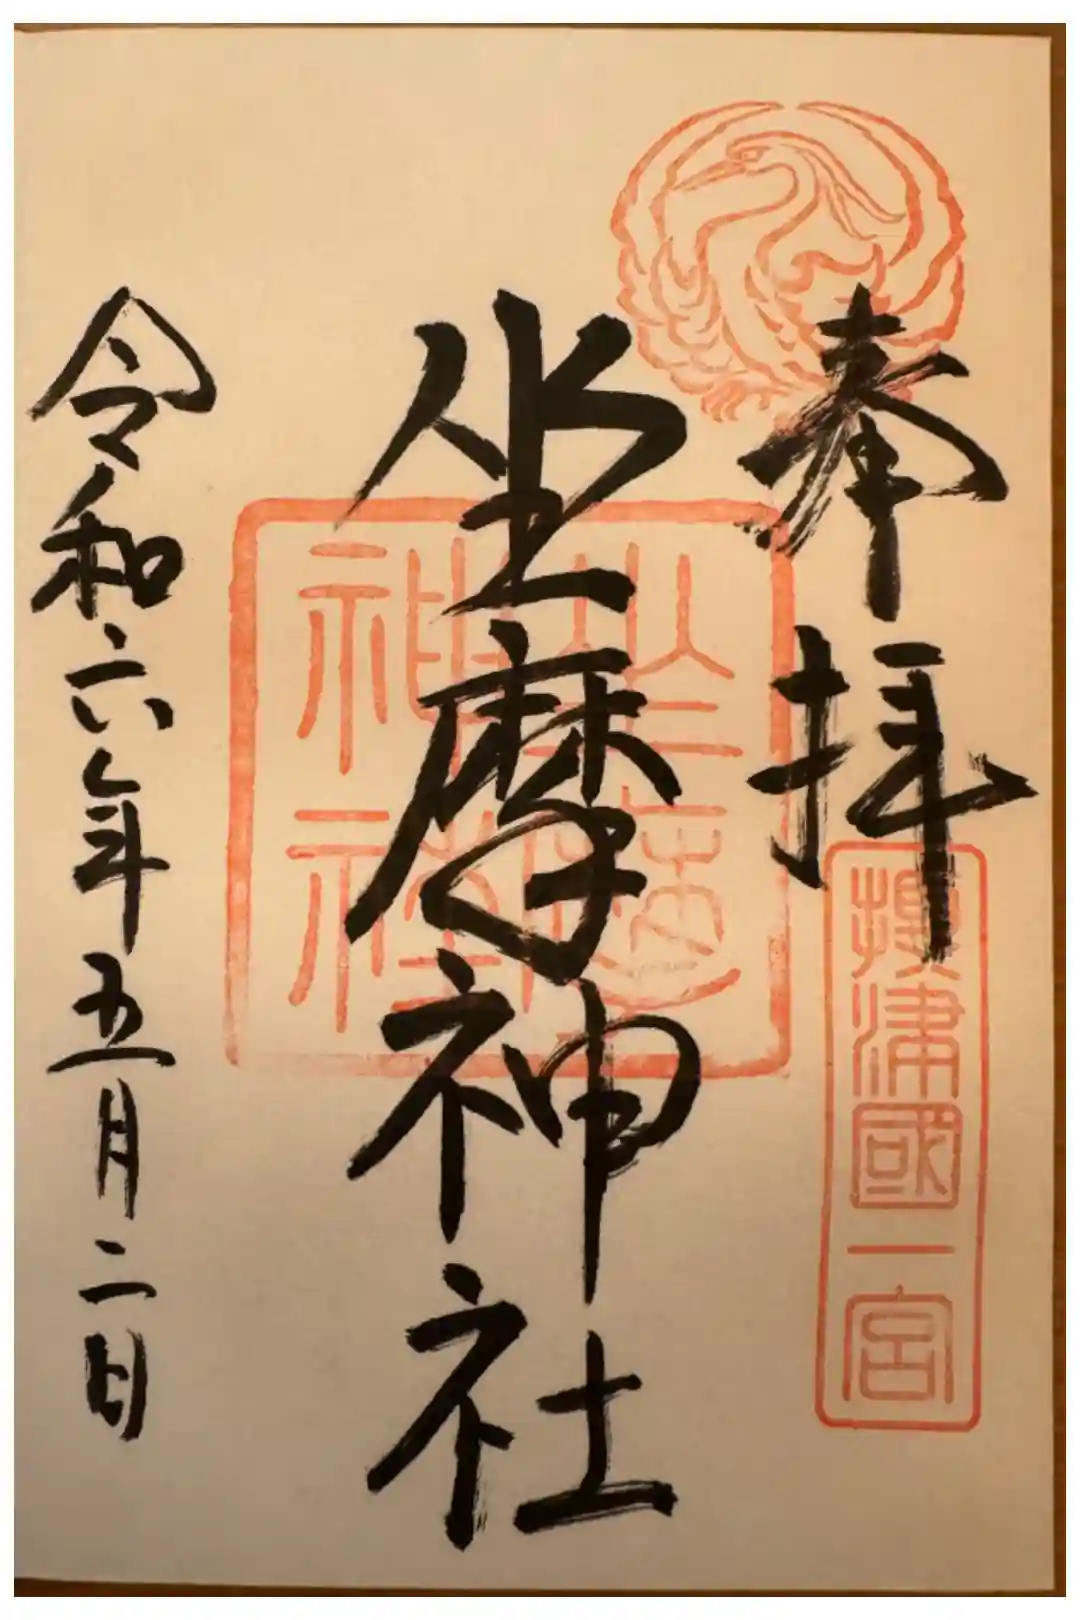 奉拝
攝津國一宮
坐摩神社
令和六年五月二日